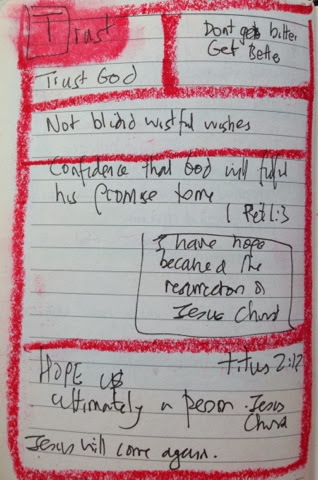 Trust
Trust God
Dont get bitter
Get Bette
Not blind wistful wishes
Confidence that God will fulfil
his promise to me
1 Pet 1:3
I have hope
because of the
resurrection of
Jesus Christ
Titus 2:12
HOPE is
ultimately a person. Jesus
Christ
Jesus will come again.